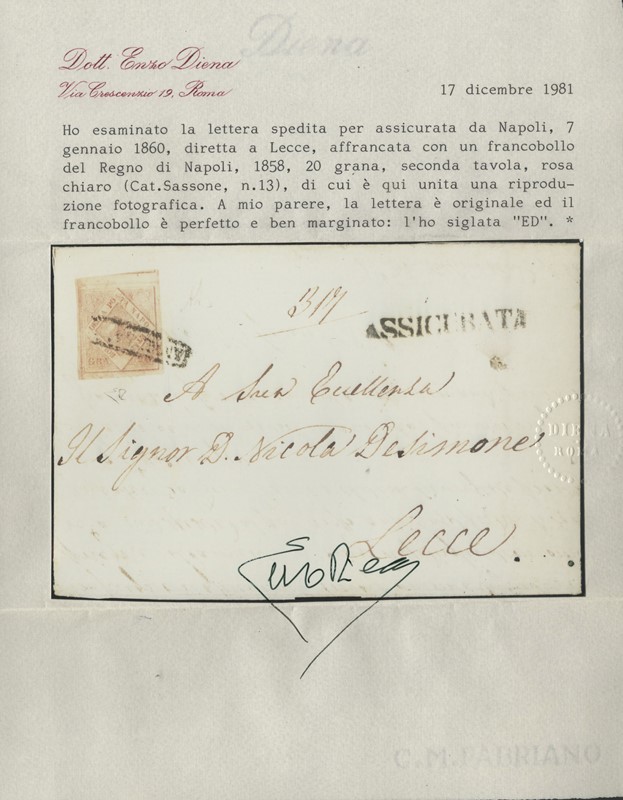 Diena
Dott. Enzo Diena
Via Crescenzio 19, Roma
17 dicembre 1981
Ho esaminato la lettera spedita per assicurata da Napoli, 7
gennaio 1860, diretta a Lecce, affrancata con un francobollo
del Regno di Napoli, 1858, 20 grana, seconda tavola, rosa
chiaro (Cat.Sassone, n.13), di cui è qui unita una riprodu-
zione fotografica. A mio parere, la lettera è originale ed il
francobollo è perfetto e ben marginato: l'ho siglata "ED". *
317
ASSICURATA
A Sua Eccellenza
Il Signor D. Nicola Desimone
DIENA
ROMA
Lecce
C.M.FABRIANO